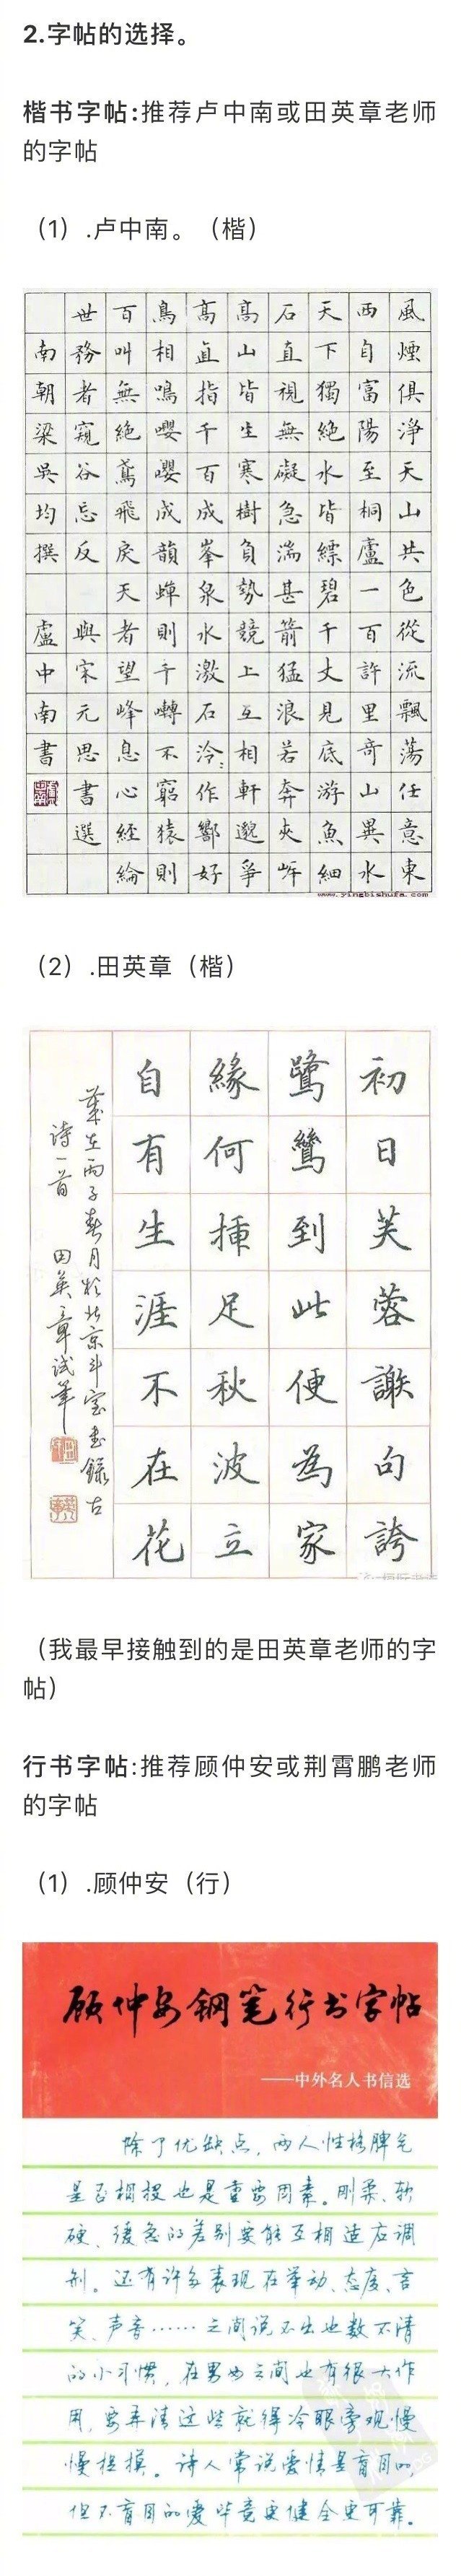 2.字帖的选择。
楷书字帖:推荐卢中南或田英章老师
的字帖
（1）.卢中南。（楷）
風煙俱淨天山共色從流飄蕩任意東
西自富陽至桐廬一百許里奇山異水
天下獨絕水皆縹碧千丈見底游魚細
石直視無礙急湍甚箭猛浪若奔夾岸
高山皆生寒樹負勢競上互相軒邈爭
高直指千百成峯泉水激石泠々作響好
鳥相鳴嚶嚶成韻蟬則千囀不窮猿則
百叫無絕鳶飛戾天者望峰息心經綸
世務者窺谷忘反 與宋元思書選
南朝梁吳均撰 盧中南書
www.yingbishufa.com
（2）.田英章（楷）
初日芙蓉謝句誇
鷺鷥到此便為家
緣何插足秋波立
自有生涯不在花
歲在丙子春月於北京斗室書錄古
诗一首 田英章試筆
（我最早接触到的是田英章老师的字
帖）
行书字帖:推荐顾仲安或荆霄鹏老师
的字帖
（1）.顾仲安（行）
顾仲安钢笔行书字帖
——中外名人书信选
除了优缺点，两人性格脾气
是否相投也是重要因素。刚柔、软
硬、缓急的差别要能互相适应调
剂。还有许多表现在举动、态度、言
笑、声音……之间说不出也数不清
的小习惯，在男女之间也有很大作
用，要弄清这些就得冷眼旁观慢
慢捉摸。诗人常说爱情是盲目的，
但不盲目的爱毕竟更健全更可靠。